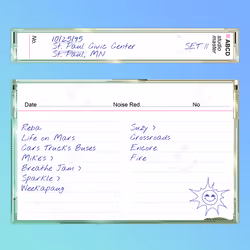 No.
10/25/95
St. Paul Civic Center
St. Paul, MN
SET II
ABCD
studio
master
Date
Noise Red.
No
Reba
Life on Mars
Cars Trucks Buses
Mike's >
Breathe Jam >
Sparkle >
Weekapaug
Suzy >
Crossroads
Encore
Fire